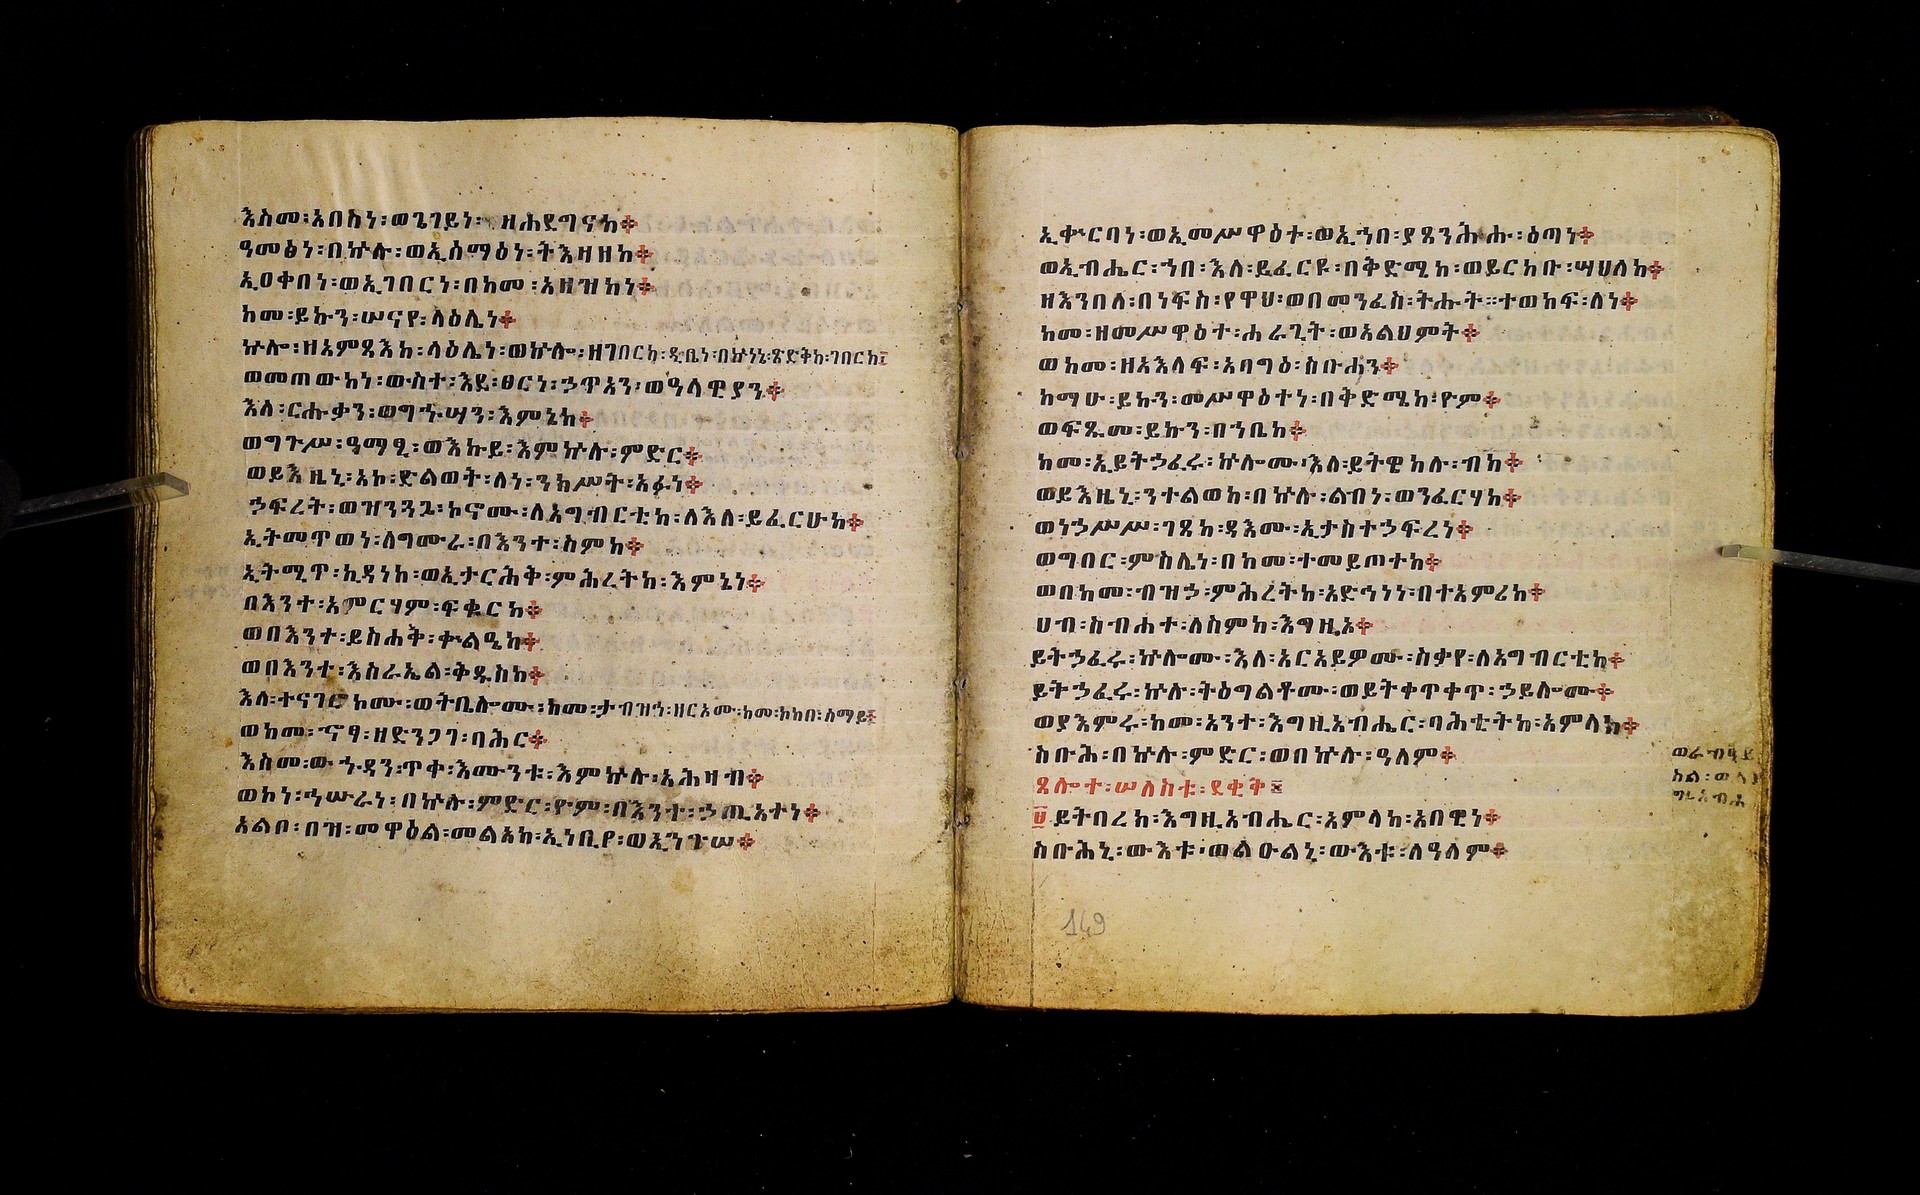 እስመ፡አበስነ፡ወጌገይነ፡ ዘሕደግናከ፨
ዓመፅነ፡በኵሉ፡ወኢሰማዕነ፡ትእዛዘከ፨
ኢዐቀብነ፡ወኢገበርነ፡በከመ፡አዘዝከነ፨
ከመ፡ይኩን፡ሠናየ፡ላዕሌነ፨
ኵሎ፡ዘአምጻእከ፡ላዕሌነ፡ወኵሎ፡ዘገበርከ፡ዲቤነ፡በኵነኔ፡ጽድቅከ፡ገበርከ፤
ወመጠውከነ፡ውስተ፡እደ፡ፀርነ፡ኃጥአን፡ወዓላዊያን፨
እለ፡ርሑቃን፡ወግኁሣን፡እምኔከ፨
ወግጉሥ፡ዓማፂ፡ወእኩይ፡እምኵሉ፡ምድር፨
ወይእዜኒ፡አኮ፡ድልወት፡ለነ፡ንክሥት፡አፉነ፨
ኃፍረት፡ወዝንጓጔ፡ኮኖሙ፡ለአግብርቲከ፡ለእለ፡ይፈርሁከ፨
ኢትመጥወነ፡ለግሙራ፡በእንተ፡ስምከ፨
ኢትሚጥ፡ኪዳነከ፡ወኢታርሕቅ፡ምሕረትከ፡እምኔነ፨
በእንተ፡አምርሃም፡ፍቁርከ፨
ወበእንተ፡ይስሐቅ፡ቍልዔከ፨
ወበእንተ፡እስራኤል፡ቅዱስከ፨
እለ፡ተናገሮከሙ፡ወትቤሎሙ፡ከመ፡ታብዝኅ፡ዘርአሙ፡ከመ፡ኮከበ፡ሰማይ፤
ወከመ፡ኆፃ፡ዘድንጋገ፡ባሕር፨
እስመ፡ውኁዳን፡ጥቀ፡እሙንቱ፡እምኵሉ፡አሕዛብ፨
ወኮነ፡ኅሡራነ፡በኵሉ፡ምድር፡ዮም፡በእንተ፡ኃጢአተነ፨
አልቦ፡በዝ፡መዋዕል፡መልአከ፡ኢነቢየ፡ወኢንጉሠ፨
ኢቍርባነ፡ወኢመሥዋዕተ፡ወኢኀበ፡ያጼንሕሑ፡ዕጣነ፨
ወኢብሔር፡ኀበ፡እለ፡ይፈርዩ፡በቅድሜከ፡ወይርከቡ፡ሣህለከ፨
ዘእንበለ፡በነፍስ፡የዋህ፡ወበመንፈስ፡ትሑት።ተወከፍ፡ለነ፨
ከመ፡ዘመሥዋዕተ፡ሐራጊት፡ወአልህምት፨
ወከመ፡ዘአእላፍ፡አባግዕ፡ስቡሓን፨
ከማሁ፡ይኩን፡መሥዋዕተነ፡በቅድሜከ፡ዮም፨
ወፍጹመ፡ይኩን፡በኀቤከ፨
ከመ፡ኢይትኃፈሩ፡ኵሎሙ፡እለ፡ይትዌከሉ፡ብከ፨
ወይእዜኒ፡ንተልወከ፡በኵሉ፡ልብነ፡ወንፈርሃከ፨
ወነኃሥሥ፡ገጸከ፡ዳእሙ፡ኢታስተኃፍረነ፨
ወግበር፡ምስሌነ፡በከመ፡ተመይጦተከ፨
ወበከመ፡ብዝኃ፡ምሕረትከ፡አድኅነነ፡በተአምሪከ፨
ሀብ፡ስብሐተ፡ለስምከ፡እግዚኦ፨
ይትኃፈሩ፡ኵሎሙ፡እለ፡አርአይዎሙ፡ስቃየ፡ለአግብርቲከ፨
ይትኃፈሩ፡ኵሉ፡ትዕግልቶሙ፡ወይትቀጥቀጥ፡ኃይሎሙ፨
ወያእምሩ፡ከመ፡አንተ፡እግዚአብሔር፡ባሕቲትከ፡አምላክ፨
ስቡሕ፡በኵሉ፡ምድር፡ወበኵሉ፡ዓለም፨
ጸሎተ፡ሠለስቱ፡ደቂቅ፨
፱ ይትበረክ፡እግዚአብሔር፡አምላከ፡አበዊነ፨
ስቡሕኒ፡ውእቱ፡ወልዑልኒ፡ውእቱ፡ለዓለም፨
149